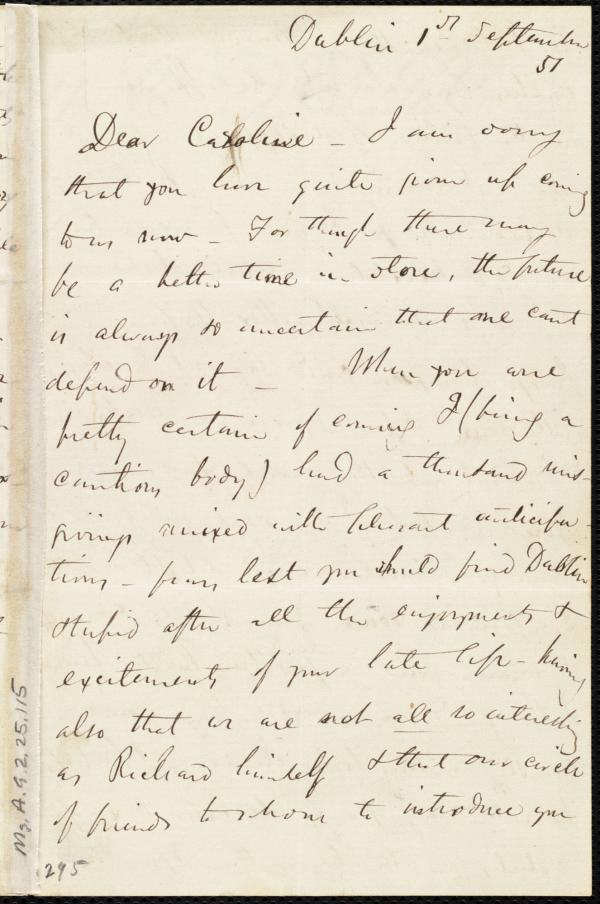 Dublin 1st September
51
Dear Caroline - I am sorry
that you have quite given up coming
to us now - For though there may
be a better time in store, the future
is always so uncertain that one cant
depend on it - When you were
pretty certain of coming I (being a
cautious body) had a thousand mis-
givings mixed with pleasant anticipa-
tions - fears lest you should find Dublin
stupid after all the enjoyments &
excitements of your late life - knowing
also that we are not all so interesting
as Richard himself & that our circle
of friends to whom to introduce you
Ms. A.9.2.25.115
295